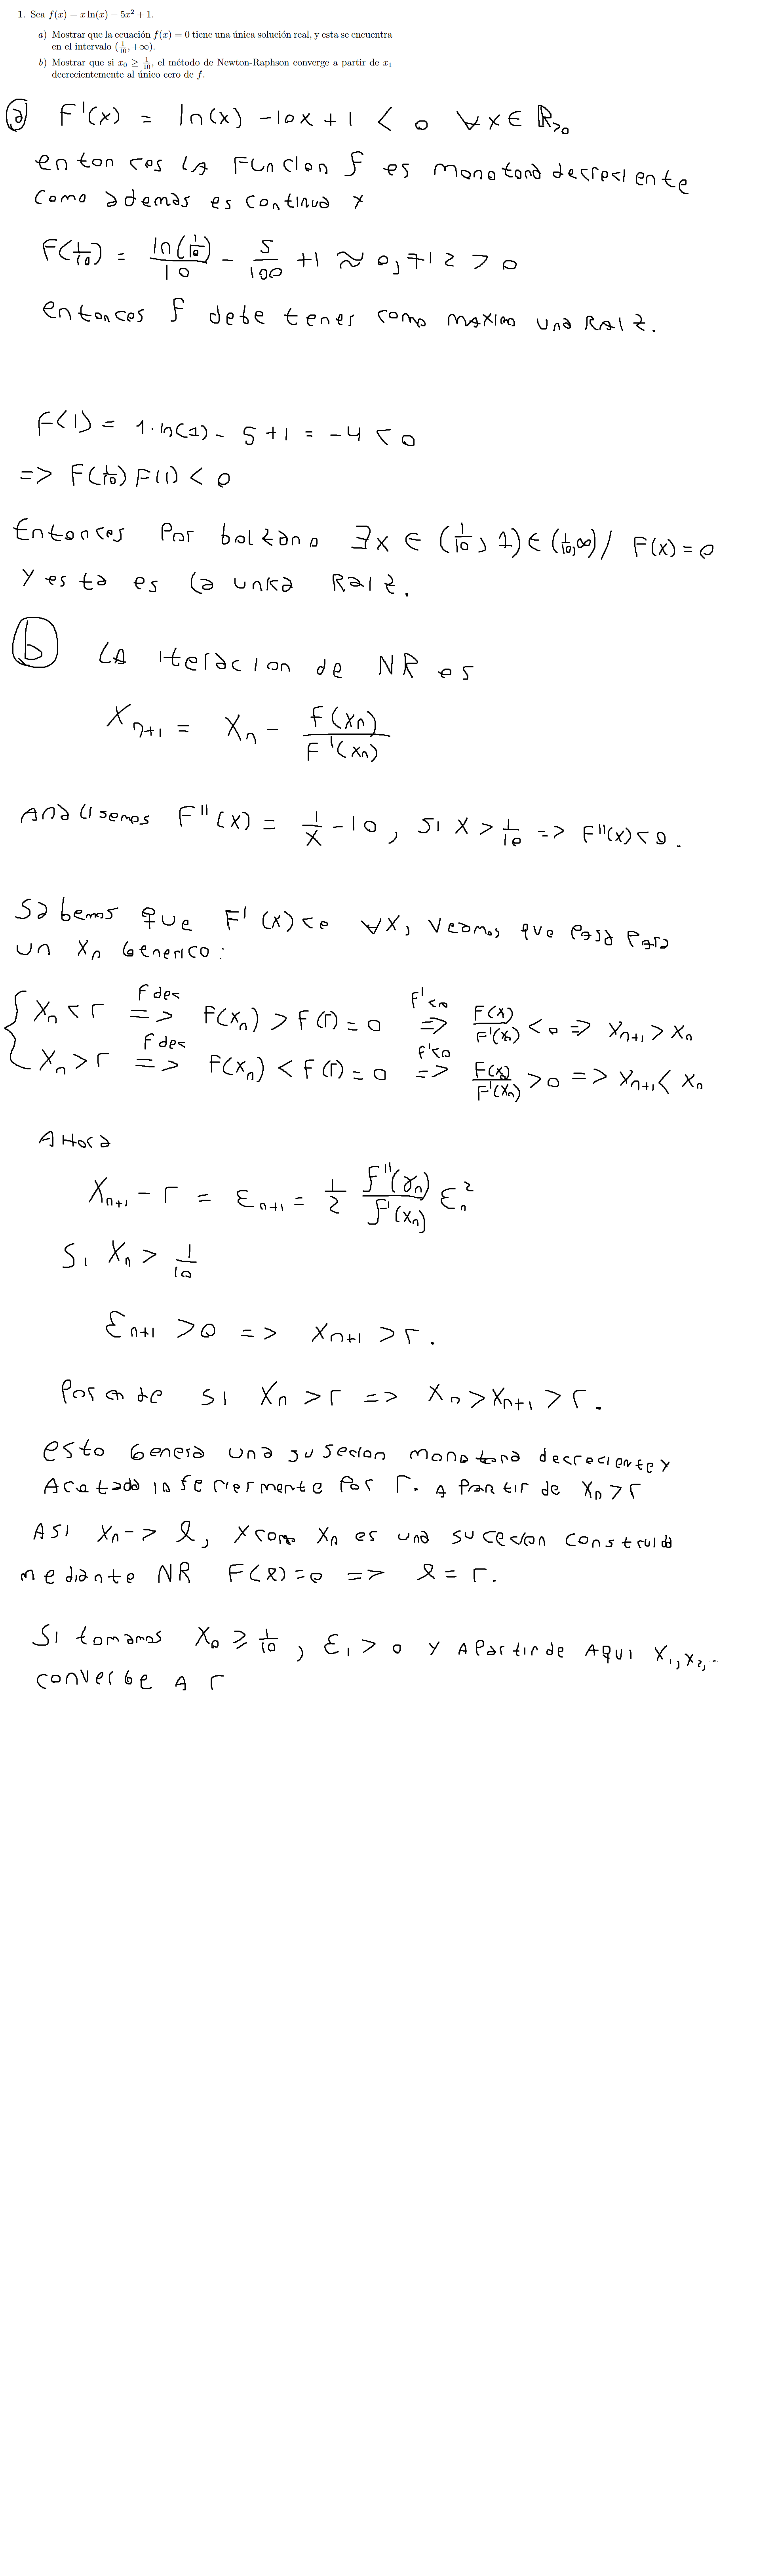 1. Sea f(x) = x ln(x) − 5x² + 1.
a) Mostrar que la ecuación f(x) = 0 tiene una única solución real, y esta se encuentra
en el intervalo (1/10, +∞).
b) Mostrar que si x₀ ≥ 1/10, el método de Newton-Raphson converge a partir de x₁
decrecientemente al único cero de f.
ⓐ F'(x) = ln(x) − 10x + 1 < 0 ∀x ∈ ℝ>0
entonces LA FUNCION f es monotona decreciente
como además es continua y
F(1/10) = ln(1/10)/10 − 5/100 + 1 ≈ 0,712 > 0
entonces f debe tener como maximo una RAIZ.
F(1) = 1·ln(1) − 5 + 1 = −4 < 0
=> F(1/10) F(1) < 0
Entonces Por bolzano ∃x ∈ (1/10, 1) ∈ (1/10, ∞) / F(x) = 0
Y esta es la unica RaIz.
ⓑ LA iteracion de NR es
Xn+1 = Xn − F(Xn)/F'(Xn)
Analisemos F''(x) = 1/x − 10, SI X > 1/10 => F''(x) < 0.
Sabemos que F'(x) < 0 ∀X, veamos que pasa para
un Xn Generico:
{ Xn < r =>(F dec) F(Xn) > F(r) = 0 =>(F'<0) F(X)/F'(Xn) < 0 => Xn+1 > Xn
Xn > r =>(F dec) F(Xn) < F(r) = 0 =>(F'<0) F(X)/F'(Xn) > 0 => Xn+1 < Xn
AHora
Xn+1 − r = εn+1 = 1/2 f''(γn)/f'(xn) εn²
Si Xn > 1/10
εn+1 > 0 => Xn+1 > r.
Por ende si Xn > r => Xn > Xn+1 > r.
esto Genera una susecion monotona decreciente y
Acotada inferiormente Por r. a Partir de Xn > r
ASI Xn -> l, y como Xn es una sucesion construida
mediante NR F(l) = 0 => l = r.
Si tomamos X₀ ≥ 1/10, ε₁ > 0 Y A Partir de AQUI X₁, X₂, ..
converge A r